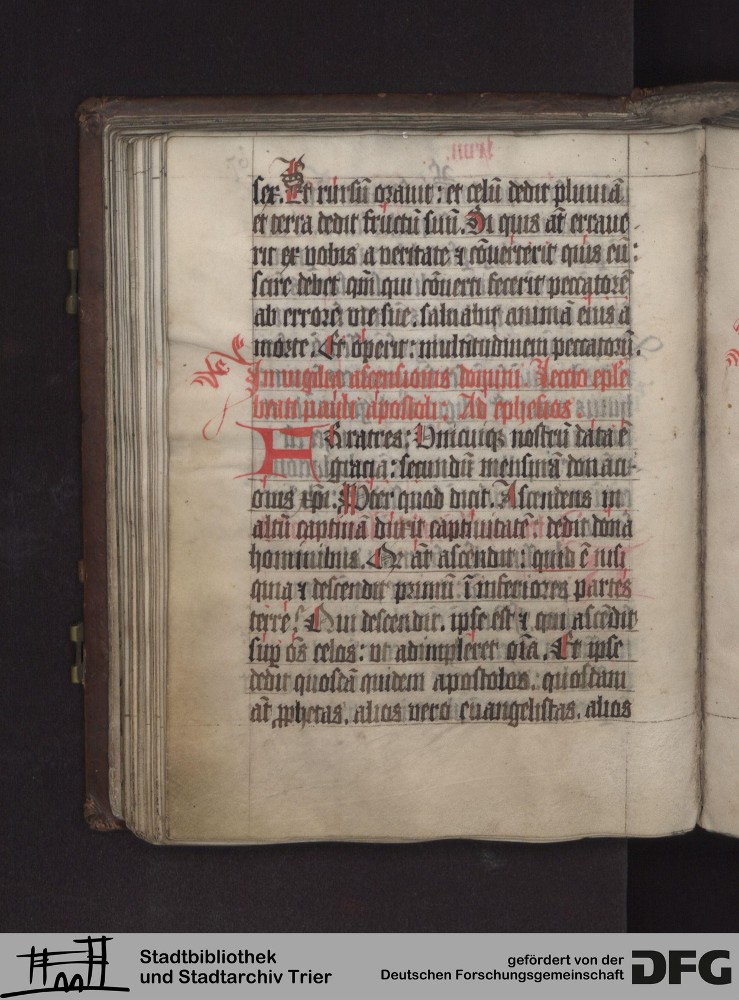 sex. Et rursū orauit: et celū dedit pluuiā
et terra dedit fructū suū. Si quis āt erraue
rit ex vobis a veritate ⁊ cōuerterit quis eū:
scire debet qm̄ qui cōuerti fecerit peccatorē
ab errore vie sue. saluabit animā eius a
morte. Et operit: multitudinem peccatorū.
In vigilia ascensionis dn̄i. Lectio ep̄le
beati pauli apostoli: Ad ephesios
Fratres: Vnicuiqꝫ nostrū data ē
gracia: secundū mensurā donaci-
onis xp̄i. Pter quod dicit. Ascendens in
altū captiuā duxit captiuitatē: dedit dona
hominibus. Qr āt ascendit: quid ē nisi
quia ⁊ descendit primū ī inferiores partes
terre? Qui descendit. ipse est ⁊ qui ascēdit
suꝑ ōs celos: vt adimpleret oīa. Et ipse
dedit quosdā quidem apostolos. quosdam
āt ꝓphetas. alios vero euangelistas. alios
Stadtbibliothek
und Stadtarchiv Trier
gefördert von der
Deutschen Forschungsgemeinschaft
DFG